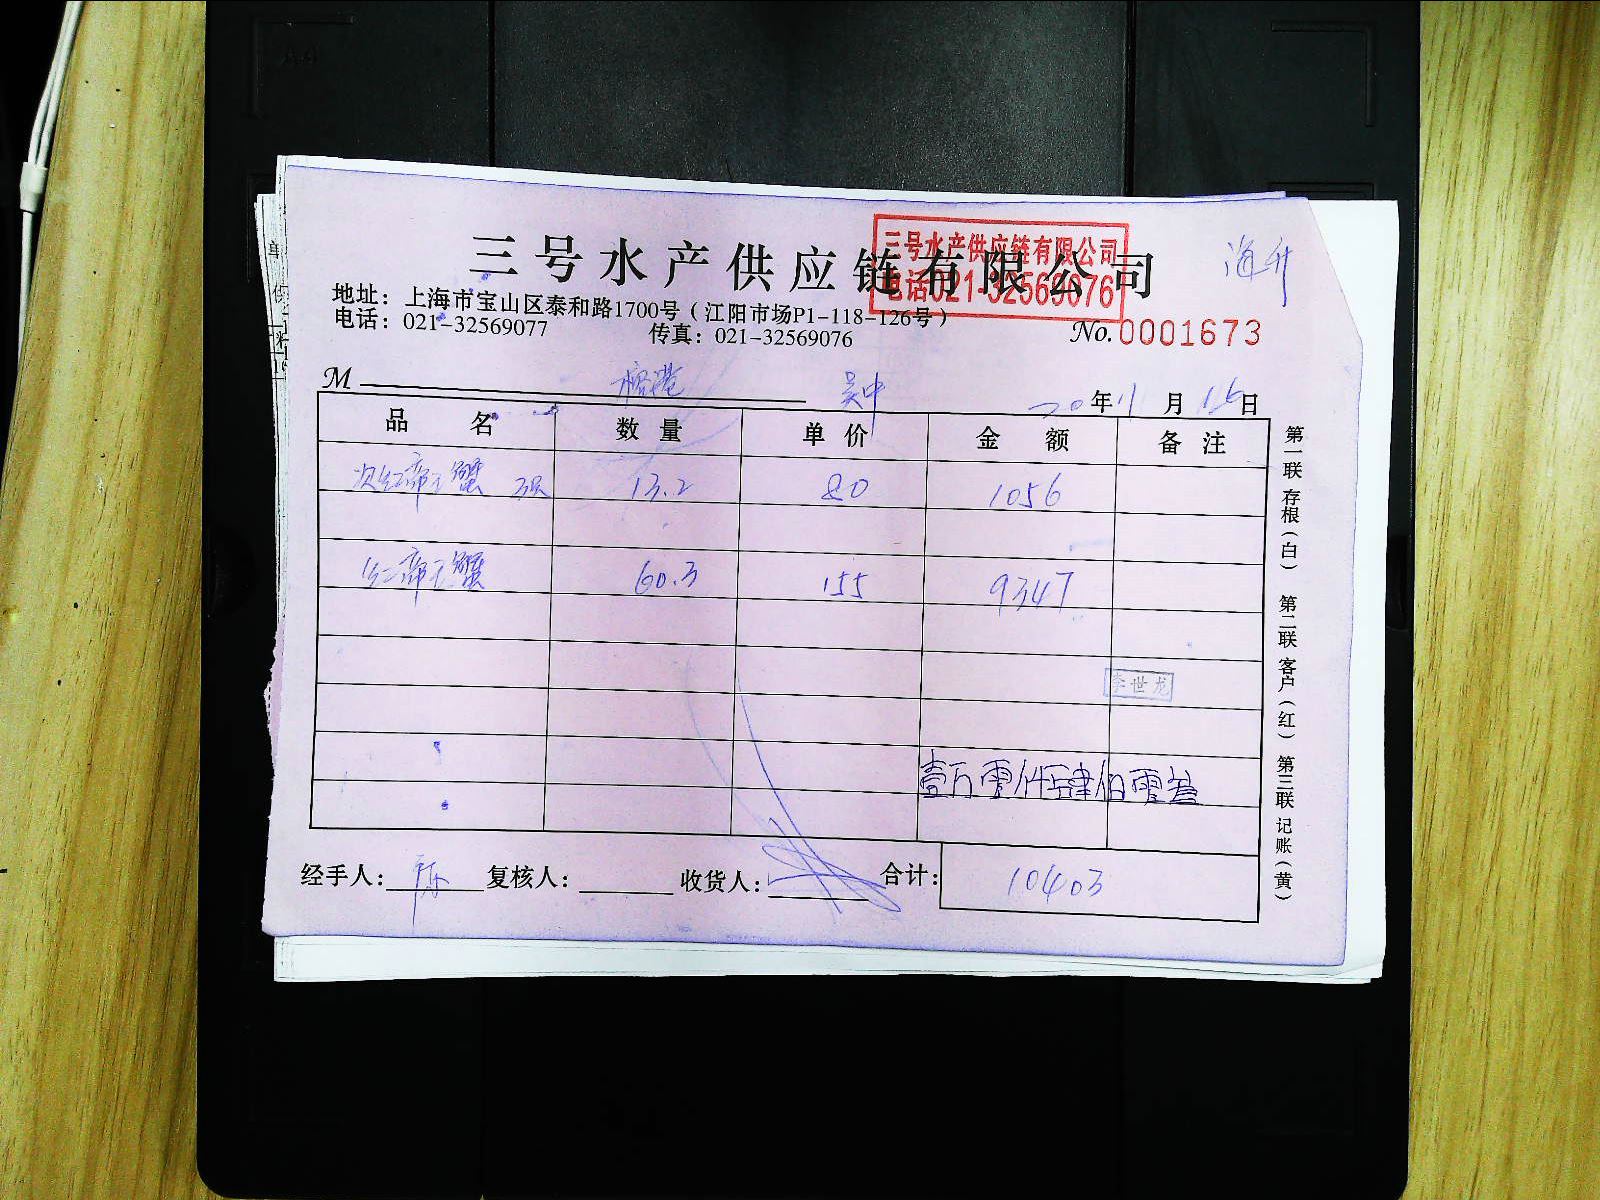 三号水产供应链有限公司
三号水产供应链有限公司
电话021-32569076
海升
地址：上海市宝山区泰和路1700号（江阳市场P1-118-126号）
电话：021-32569077 传真：021-32569076
No. 0001673
M 吴中
20年11月15日
品名 数量 单价 金额 备注
次红帝王蟹 13.2 80 1056
红帝王蟹 60.3 155 9347
李世龙
壹万零仟肆佰零叁
经手人：陈 复核人： 收货人： 合计：10403
第一联 存根（白） 第二联 客户（红） 第三联 记账（黄）